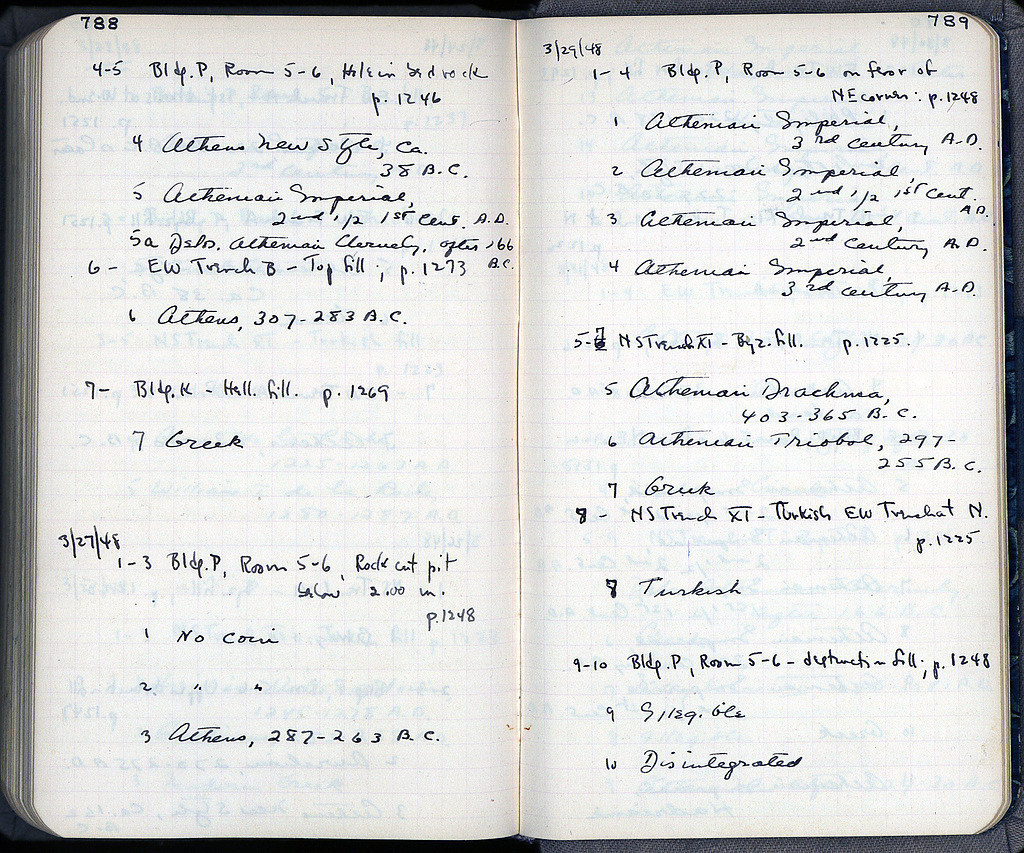 788
4-5 Bldg. P, Room 5-6, Hole in bedrock
p. 1246
4 Athens New Style, ca.
38 B.C.
5 Athenian Imperial,
2nd 1/2 1st Cent. A.D.
5a Delos, Athenian Cleruchy, after 166
B.C.
6- EW Trench B - Top fill; p. 1273
6 Athens, 307-283 B.C.
7- Bldg. K - Hell. fill. p. 1269
7 Greek
3/27/48
1-3 Bldg. P, Room 5-6, Rock cut pit
below 2.00 m.
p. 1248
1 No coin
2 " "
3 Athens, 287-263 B.C.
789
3/29/48
1-4 Bldg. P, Room 5-6 on floor of
NE corner: p. 1248
Athenian Imperial,
3rd century A.D.
2 Athenian Imperial
2nd 1/2 1st Cent.
A.D.
3 Athenian Imperial,
2nd century A.D.
4 Athenian Imperial,
3rd century A.D.
5-7 NS Trench XI - Byz. fill. p. 1225.
5 Athenian Drachma,
403-365 B.C.
6 Athenian Triobol, 297-
255 B.C.
7 Greek
8 NS Trench XI - Turkish EW Trench at N.
p. 1225
8 Turkish
9-10 Bldg. P, Room 5-6 - destruction fill; p. 1248
9 Illegible
10 Disintegrated